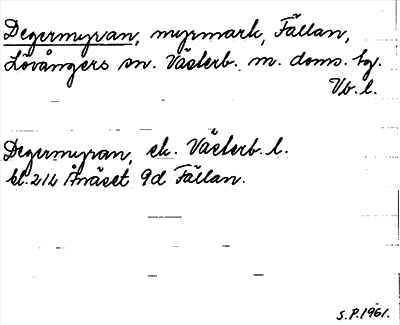 Degermyran, myrmark, Fällan,
Lövångers sn. Västerb. m. doms. hg.
Vb. l.
Degermyran, ek. Västerb. l.
bl. 212 Ånäset 9d Fällan.
S.P. 1961.